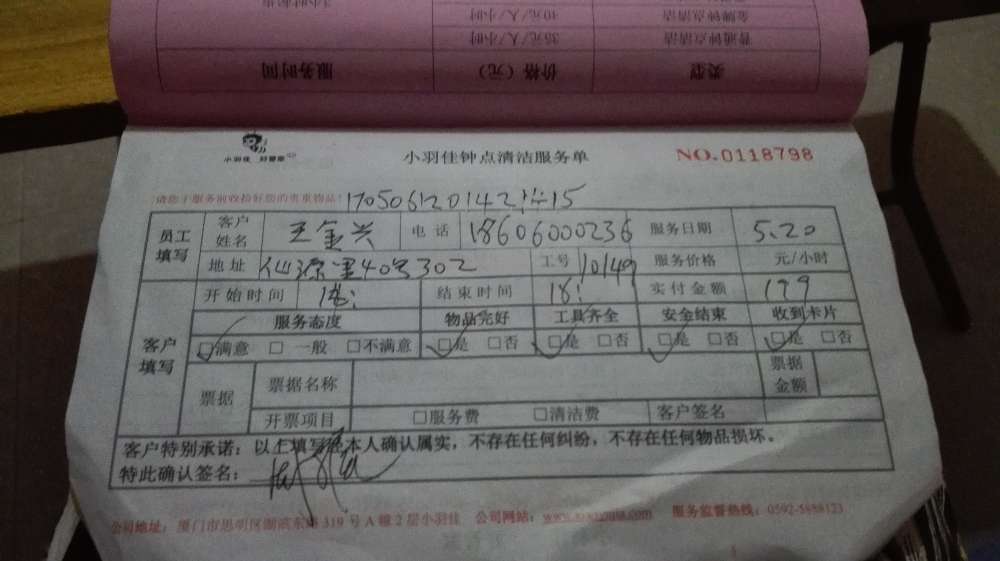 服务时间 价格（元） 类型
35元/人/小时 普通钟点清洁
40元/人/小时 金牌钟点清洁
小羽佳
小羽佳钟点清洁服务单 NO.0118798
请您于服务前收拾好您的贵重物品!
员工填写 客户姓名 王金兴 电话 18606000236 服务日期 5.20
地址 仙源里40号302 工号 10149 服务价格 元/小时
开始时间 结束时间 18: 实付金额 199
客户填写 服务态度 物品完好 工具齐全 安全结束 收到卡片
☑满意 □一般 □不满意 ☑是 □否 ☑是 □否 ☑是 □否 ☑是 □否
票据 票据名称 票据金额
开票项目 □服务费 □清洁费 客户签名
客户特别承诺：以上填写经本人确认属实，不存在任何纠纷，不存在任何物品损坏。
特此确认签名：
公司地址：厦门市思明区湖滨东路319号A幢2层小羽佳 公司网站： 服务监督热线：0592-5888123